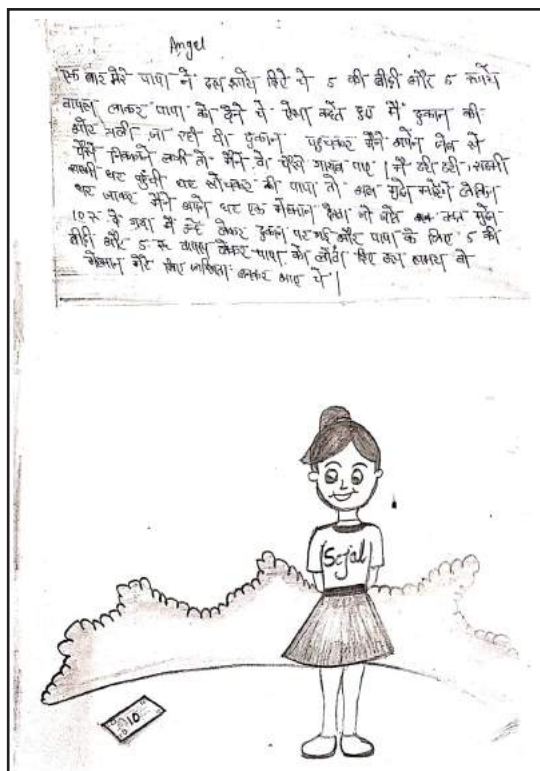 Angel
एक बार मेरे पापा ने दस रूपये दिये थे 5 की बीड़ी और 5 रूपये
वापस लाकर पापा को देने थे ऐसा कहते हुए मैं दुकान की
और चली जा रही थी दुकान पहुचकर मैंने अपने जेब से
पैसे निकालने लगी तो मैंने वो पैसे गायब पाए। मैं डरी डरी, सहमी
सहमी घर पहुंची यह सोचकर की पापा तो अब मुझे मारेंगे लेकिन
घर जाकर मैंने अपने घर एक मेहमान देखा जो और मुझे
10 रू दे गया मैं उन्हें लेकर दुकान पर गई और पापा के लिए 5 की
बीड़ी और 5 रू वापस लेकर पापा को लौटा दिए उस समय वो
मेहमान मेरे लिए फरिश्ता बनकर आए थे।
Sejal
10